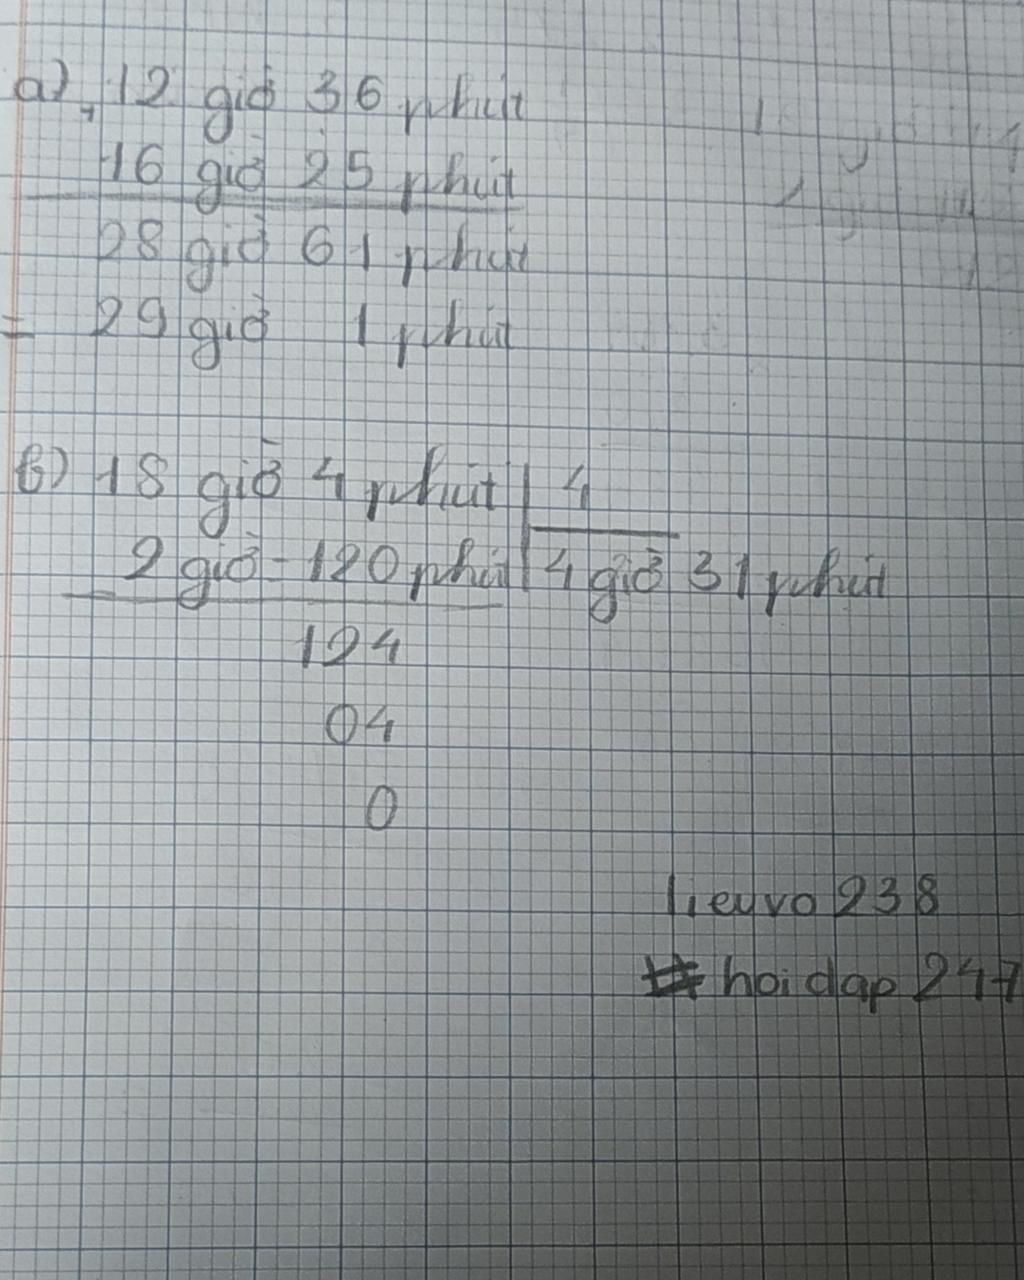 a) 12 giờ 36 phút
+
16 giờ 25 phút
28 giờ 61 phút
= 29 giờ 1 phút
b) 18 giờ 4 phút | 4
2 giờ = 120 phút | 4 giờ 31 phút
124
04
0
lieuvo238
# hoidap247